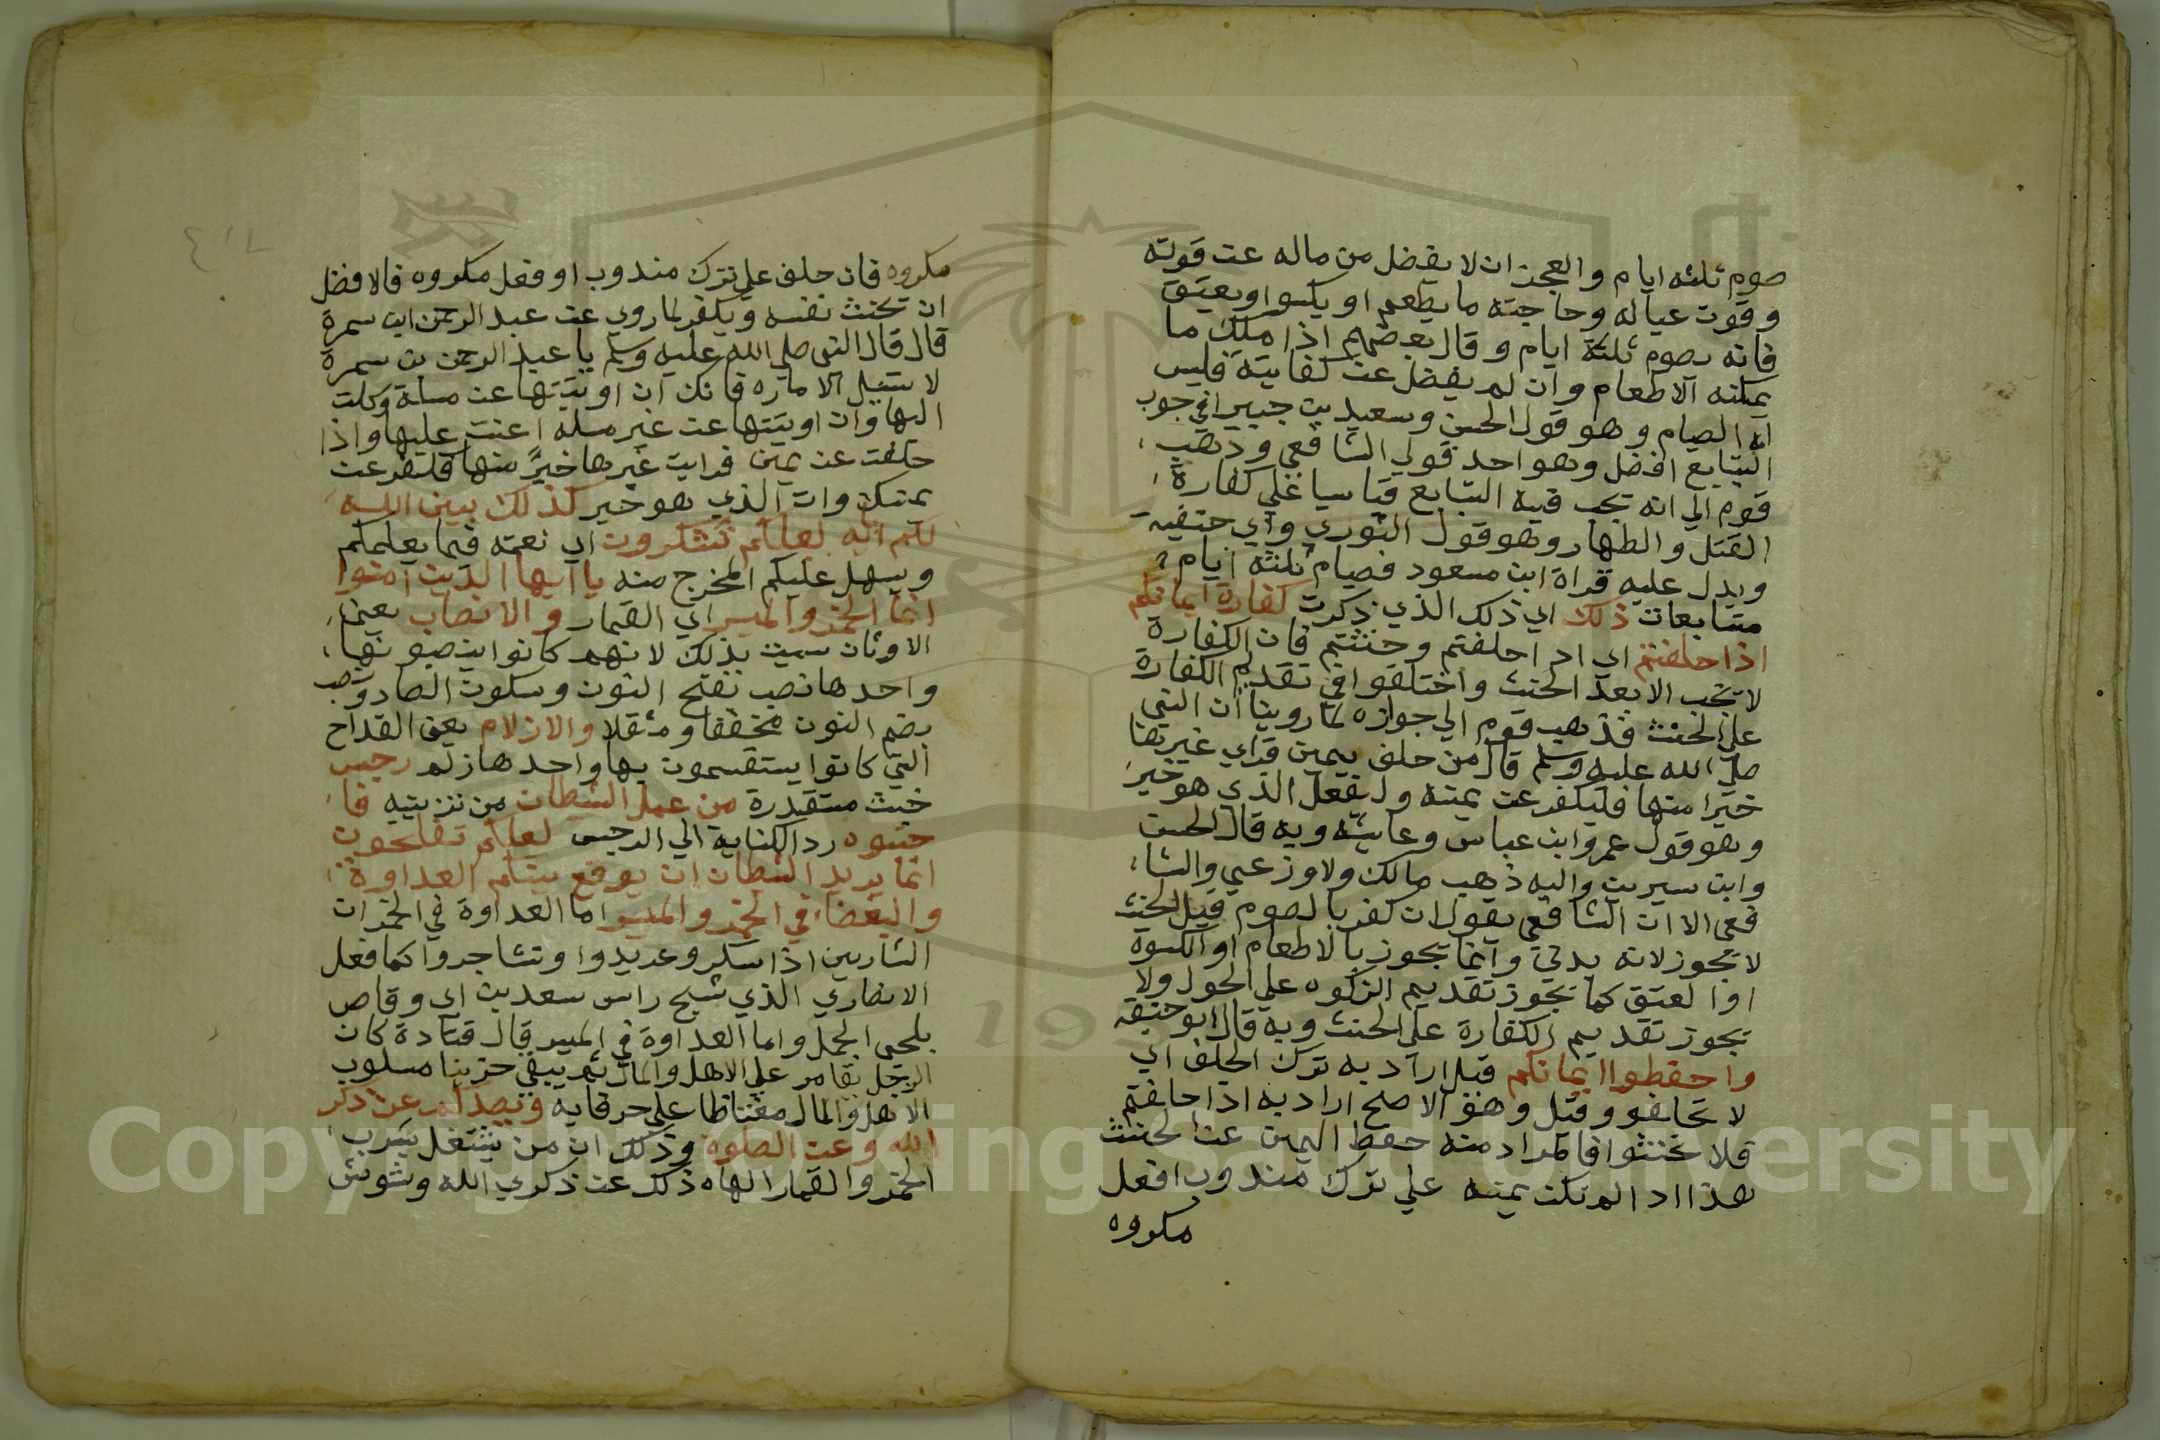 صوم ثلثه ايام والعجز ان لا يفضل من ماله عن قوته
وقوت عياله وحاجته ما يطعم او يكسو او يعتق
فانه يصوم ثلثة ايام وقال بعضهم اذا ملك ما
يمكنه الاطعام وان لم يفضل عن كفايته فليس
له الصيام وهو قول الحسن وسعيد بن جبير افي جوب
التتابع افضل وهو احد قولي الشافعي وذهب
قوم الي انه تجب فيه التتابع قياسا علي كفارة
القتل والظهار وهو قول الثوري وابي حنيفة
ويدل عليه قراة ابن مسعود فصيام ثلثه ايام
متتابعات ذلك اي ذلك الذي ذكرت كفارة ايمانكم
اذا حلفتم اي اد احلفتم وحنثتم فان الكفارة
لا تجب الا بعد الحنث واختلفوا في تقديم الكفارة
علي الحنث فذهب قوم الي جوازه لما روينا ان النبي
صلي الله عليه وسلم قال من حلف بيمين فراي غيرها
خيرا منها فليكفر عن يمينه وليفعل الذي هو خير
وهو قول عمر وابن عباس وعايشه وبه قال الحسن
وابن سيرين واليه ذهب مالك ولاوزعي والشا
فعي الا ان الشافعي يقول ان كفر بالصوم قبل الحنث
لا تجوز لانه بدني وانما يجوز بالاطعام او الكسوة
اوا لعتق كما تجوز تقديم الزكوه علي الحول ولا
تجوز تقديم الكفارة علي الحنث وبه قال ابو حنيفه
واحفظوا ايمانكم قيل اراد به ترك الحلف اي
لا تحلفو وقيل وهو الاصح اراد به اذا حلفتم
فلا تحنثوا فالمراد منه حفظ اليمين عن الحنث
هذا اد المر تكن يمينه علي ترك مندوب افعل
مكروه
مكروه فان حلف علي ترك مندوب او فعل مكروه فالافضل
ان تحنث نفسه ويكفر لما روي عن عبد الرحمن ابن سمرة
قال قال النبي صلي الله عليه وسلم يا عبد الرحمن بن سمرة
لا تسيل الاماره فانك ان اوتيتها عن مسلة وكلت
اليها وان اوتيتها عن غير مسله اعنت عليها واذا
حلفت عن يمين فرايت غيرها خيرًا منها فكفر عن
يمينك وات الذي هو خير كذلك يبين الله
لكم اياته لعلكم تشكرون اي نعمته فيما يعلمكم
ويسهل عليكم المخرج منه يا ايها الذين امنوا
انما الخمر والميسر اي القمار والانصاب يعني
الاوثان سميت بذلك لانهم كانوا ينصبونها
واحدها نصب بفتح النون وسكون الصاد ونصب
بضم النون مخففا ومثقلا والازلام يعني القداح
التي كانوا يستقسمون بها واحدها زلم رجس
خبث مستقدرة من عمل الشيطان من تزيينه فا
جتنبوه رد الكناية الي الرجس لعلكم تفلحون
انما يريد الشيطان ان يوقع بينكم العداوة
والبغضا في الخمر والميسر اما العداوة في الخمر ان
الشاربين اذا سكر وعربدوا وتشاجروا كما فعل
الانصاري الذي شج راس سعد بن ابي وقاص
بلحي الجمل واما العداوة في الميسر قال قتادة كان
الرجل يقامر علي الاهل والمال ثم يبقي حزينا مسلوب
الاهل والمال مغتاظا علي حرفايه ويصدكم عن ذكر
الله وعن الصلوة وذلك ان من يشتغل بشرب
الخمر والقمار الهاه ذلك عن ذكري الله وشوش
Copyright King Saud University